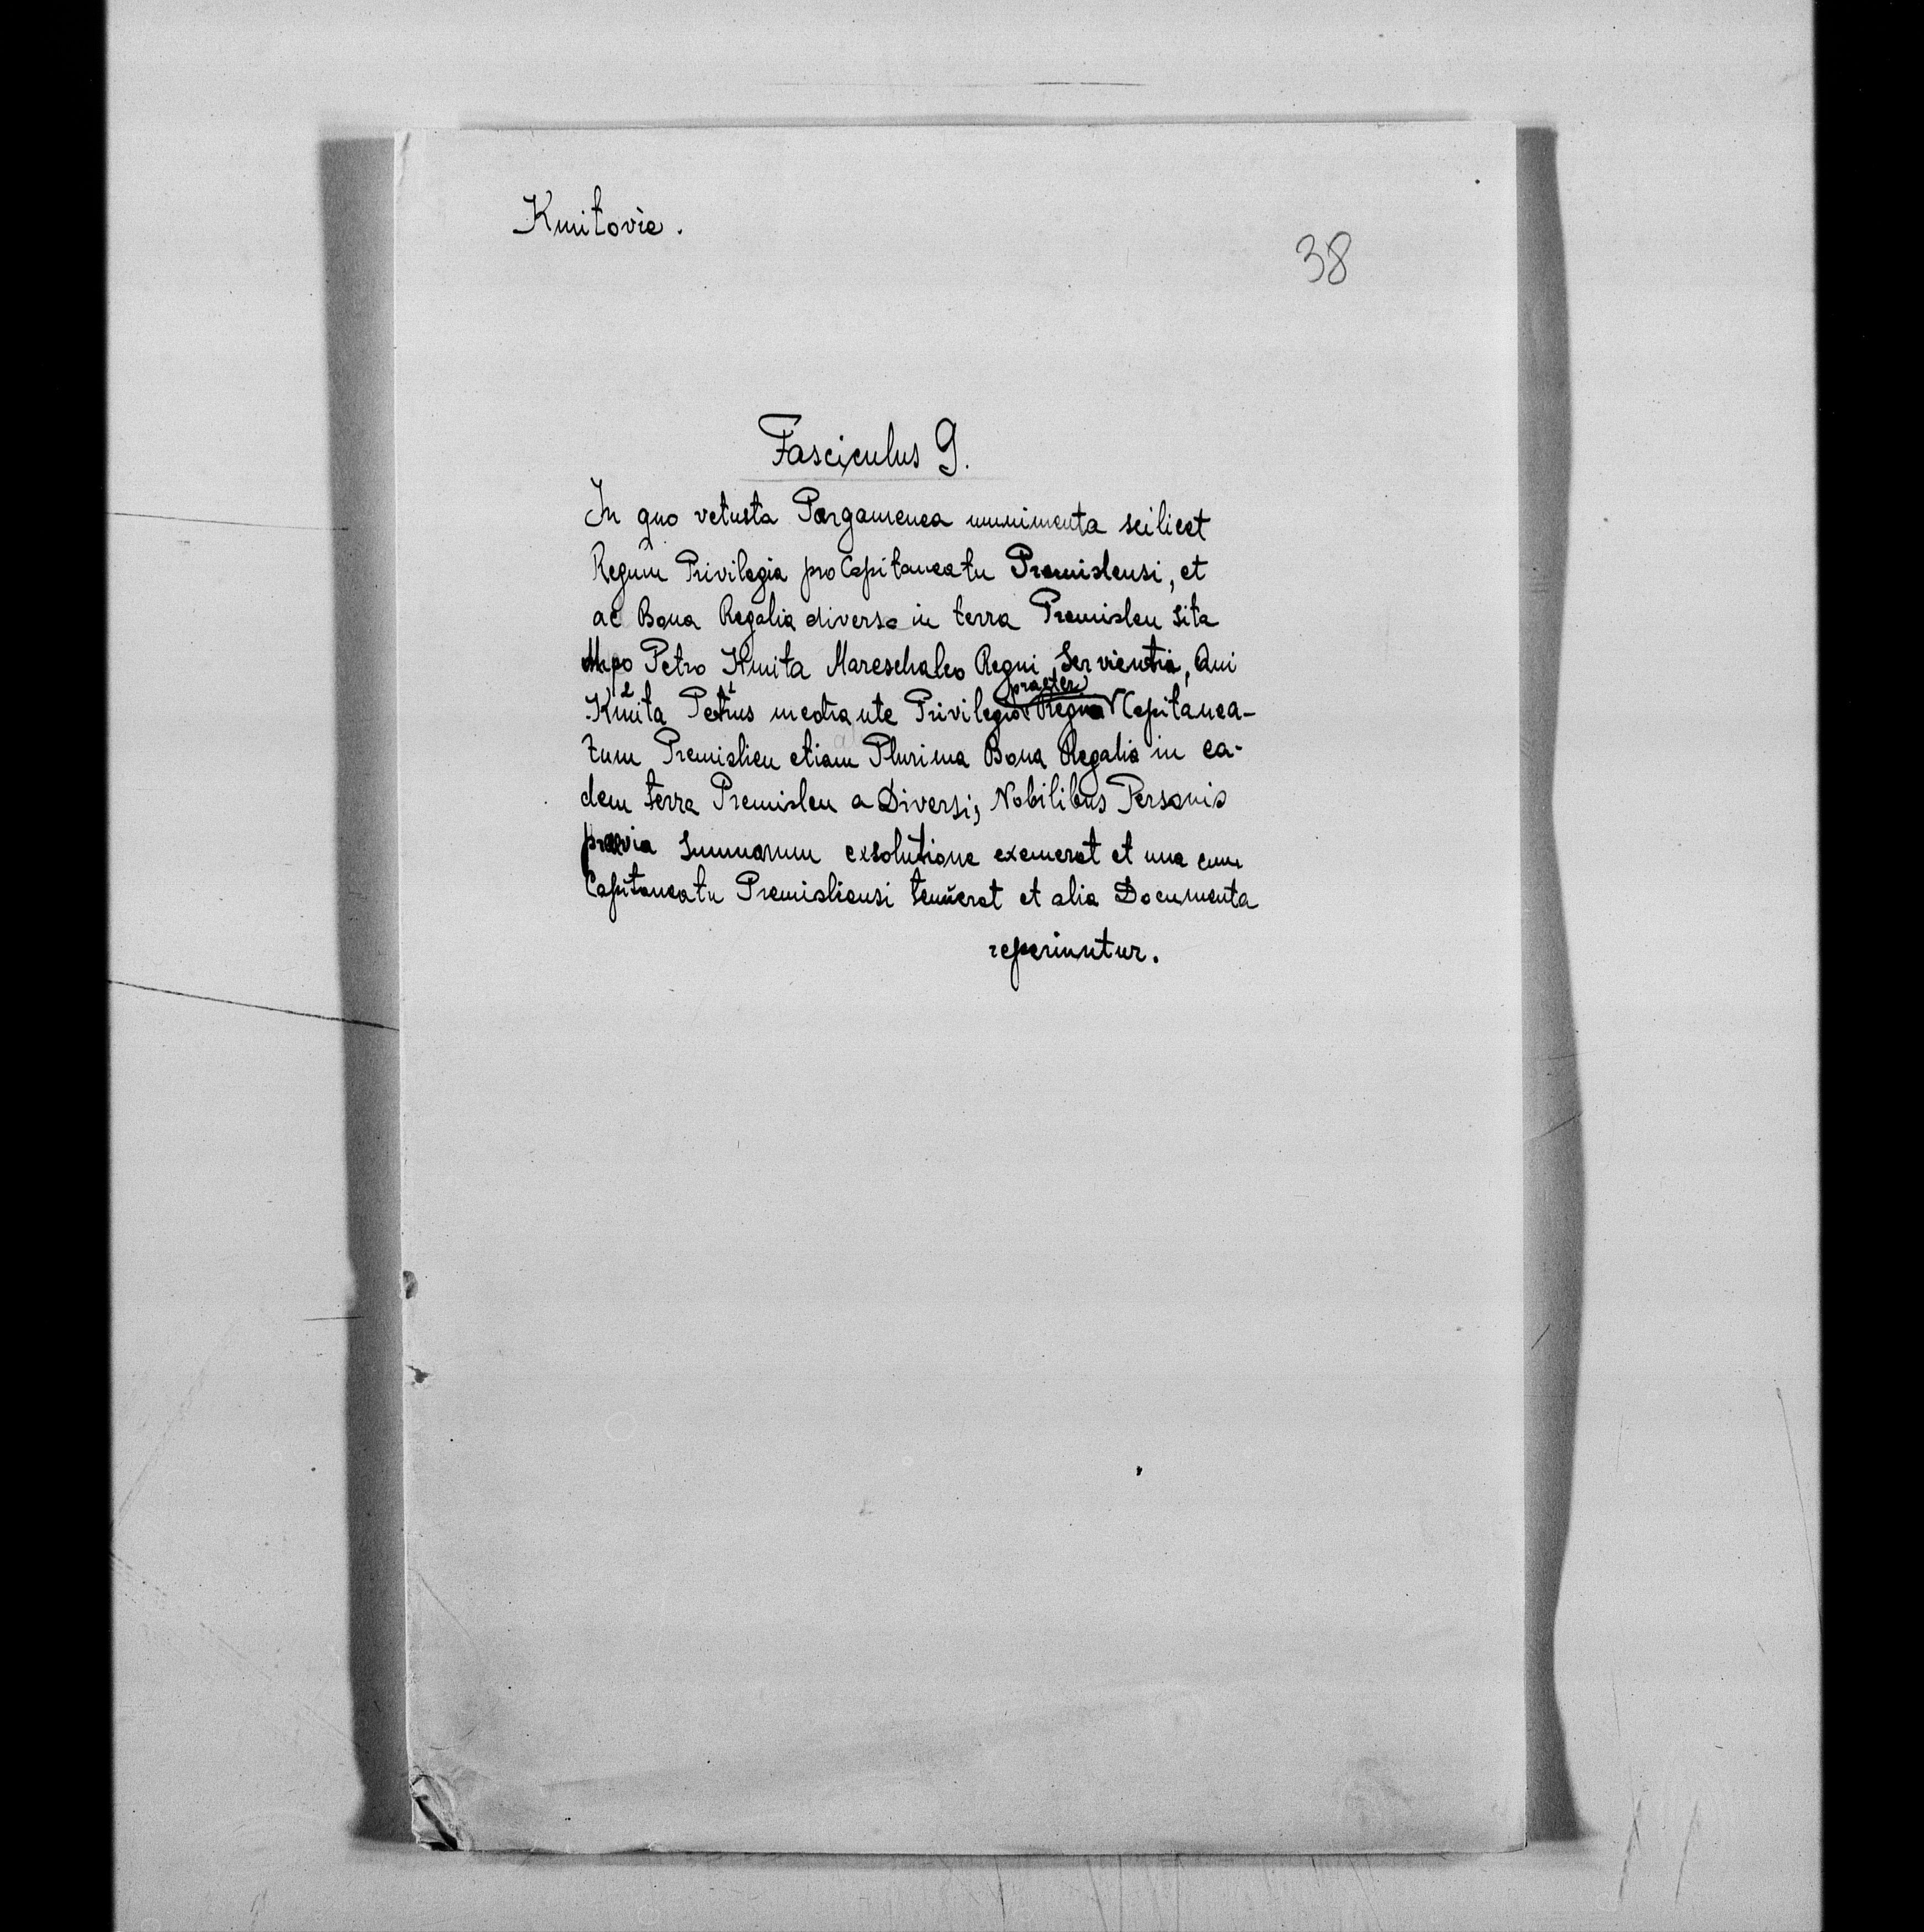 Kmitovie.
38
Fasciculus 9.
In quo vetusta Pergamenea munimenta scilicet
Regum Privilegia pro Capitaneatu Premislensi, et
ac Bona Regalia diversa in terra Premislen sita
Petro Kmita Mareschalco Regni Servientia, Qui
Kmita Petrus mediante Privilegio Regno praeter Capitanea-
tum Premislien etiam Plurima Bona Regalia in ea-
dem terra Premislen a Diversis Nobilibus Personis
praevia Summarum exsolutione exemerat et una cum
Capitaneatu Premisliensi tenuerat et alia Documenta
reperiuntur.